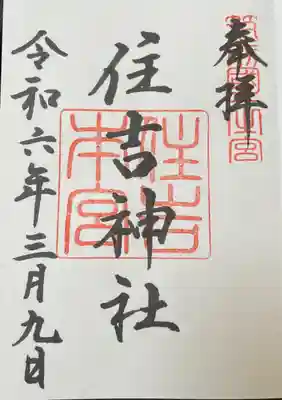 奉拝
住吉神社
住吉
本宮
令和六年三月九日